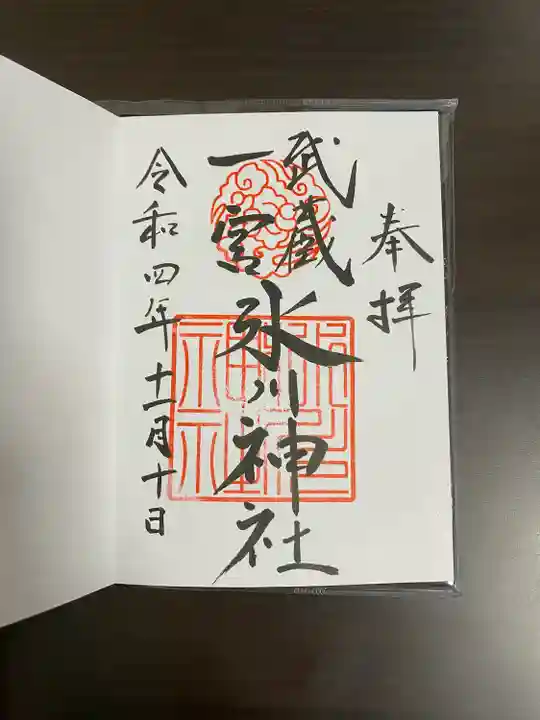 奉拝
武蔵
一宮
氷川神社
令和四年十一月十日
氷川
神社